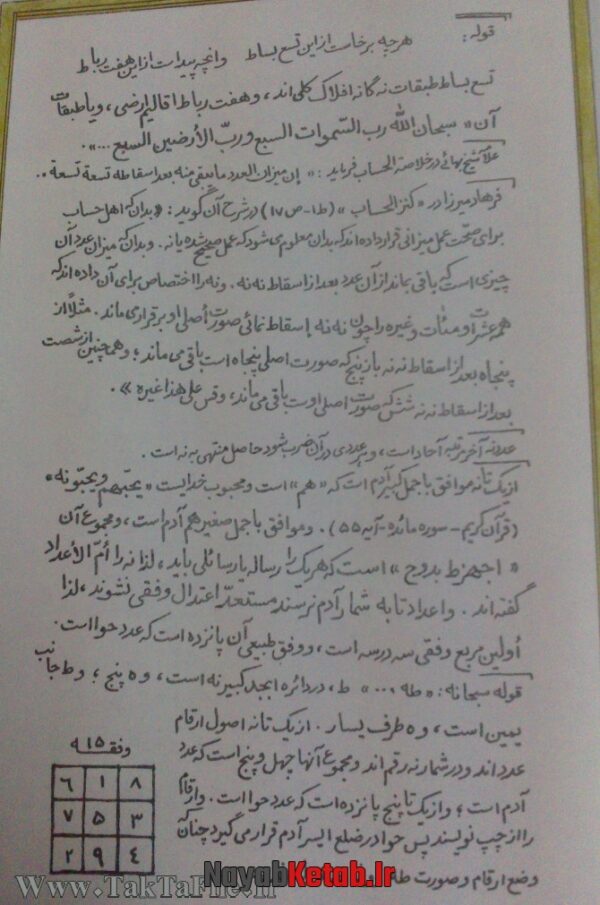 قوله: هرچه برخاست ازاین تسع بساط وانچه پیداست ازاین هفت رباط
تسع بساط طبقات نه گانه افلاک کلی اند، وهفت رباط اقالیم ارضی، ویا طبقات
آن «سبحان الله رب السموات السبع وربّ الأرضین السبع ...».
علامه شیخ بهائی در خلاصة الحساب فرماید: «إن میزان العدد مابقی منه بعد اسقاطه تسعة تسعة».
فرهاد میرزا در «کنز الحساب» (ط۱ - ص۱۷) در شرح آن گوید: «بدان که اهل حساب
برای صحّت عمل میزانی قرار داده اند که بدان معلوم می شود که عمل صحیح شده یا نه. وبدان که میزان عدد آن
چیزی است که باقی بماند از آن عدد بعد از اسقاط نه نه. ونه را اختصاص برای آن داده اند که
هم عشرات ومئات وغیره را چون نه نه إسقاط نمائی صورت أصلی او برقرار می ماند. مثلاً از
پنجاه بعد از اسقاط نه نه باز پنج که صورت اصلی پنجاه است باقی می ماند؛ وهمچنین از شصت
بعد از اسقاط نه نه شش که صورت اصلی اوست باقی می ماند، وقس علی هذا غیره».
عدد نه آخر مرتبه آحاد است، وهر عددی در آن ضرب شود حاصل منتهی به نه است.
از یک تا نه موافق با جمل کبیر آدم است که «هم» است ومحبوب خدایست «یحبّهم ویحبّونه»
(قرآن کریم - سوره مائده - آیه ۵۵). وموافق با جمل صغیر هم آدم است، ومجموع آن
«اجهزط بدوح» است که هریک را رساله یا رسائلی باید، لذا نه را أمّ الأعداد
گفته اند. واعداد تا به شمار آدم نرسند مستعدّ اعتدال وفقی نشوند، لذا
أولین مربع وفقی سه درسه است، ووفق طبیعی آن پانزده است که عدد حوا است.
قوله سبحانه: «طه ...» ط، در دائره ابجد کبیر نه است، وه پنج؛ وط جانب
یمین است، وه طرف یسار. از یک تا نه اصول ارقام
عدد اند ودر شمار نه رقم اند ومجموع آنها چهل وپنج است که عدد
آدم است؛ واز یک تا پنج پانزده است که عدد حوا است. وارقام
را از چپ نویسند پس حوا در ضلع ایسر آدم قرار می گیرد چنانکه
وضع ارقام وصورت طه
وفق ۱۵
۶ ۱ ۸
۷ ۵ ۳
۲ ۹ ۴
NayabKetab.Ir
www.TakTaFile.ir